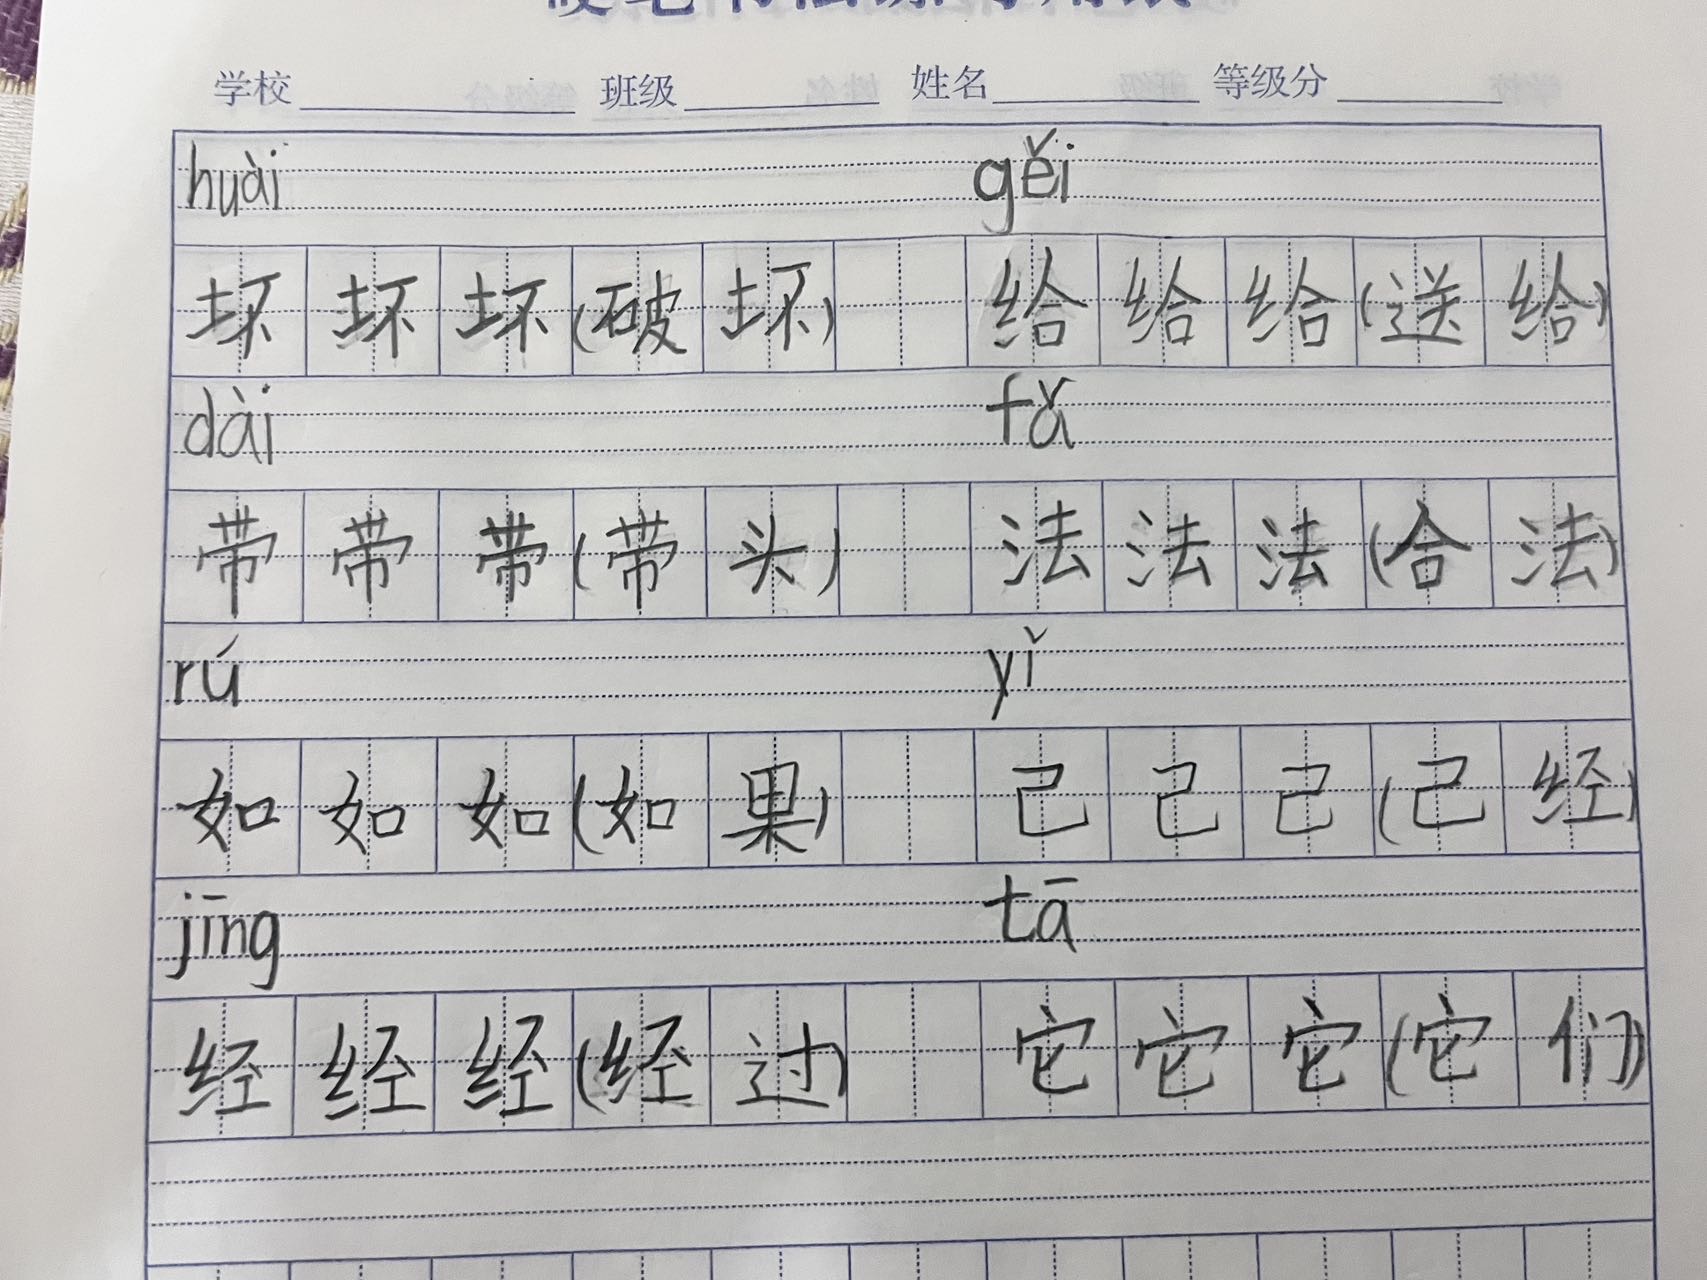 学校 班级 姓名 等级分
huài gěi
坏坏坏(破坏) 给给给(送给)
dài fǎ
带带带(带头) 法法法(合法)
rú yǐ
如如如(如果) 已已已(已经)
jīng tā
经经经(经过) 它它它(它们)